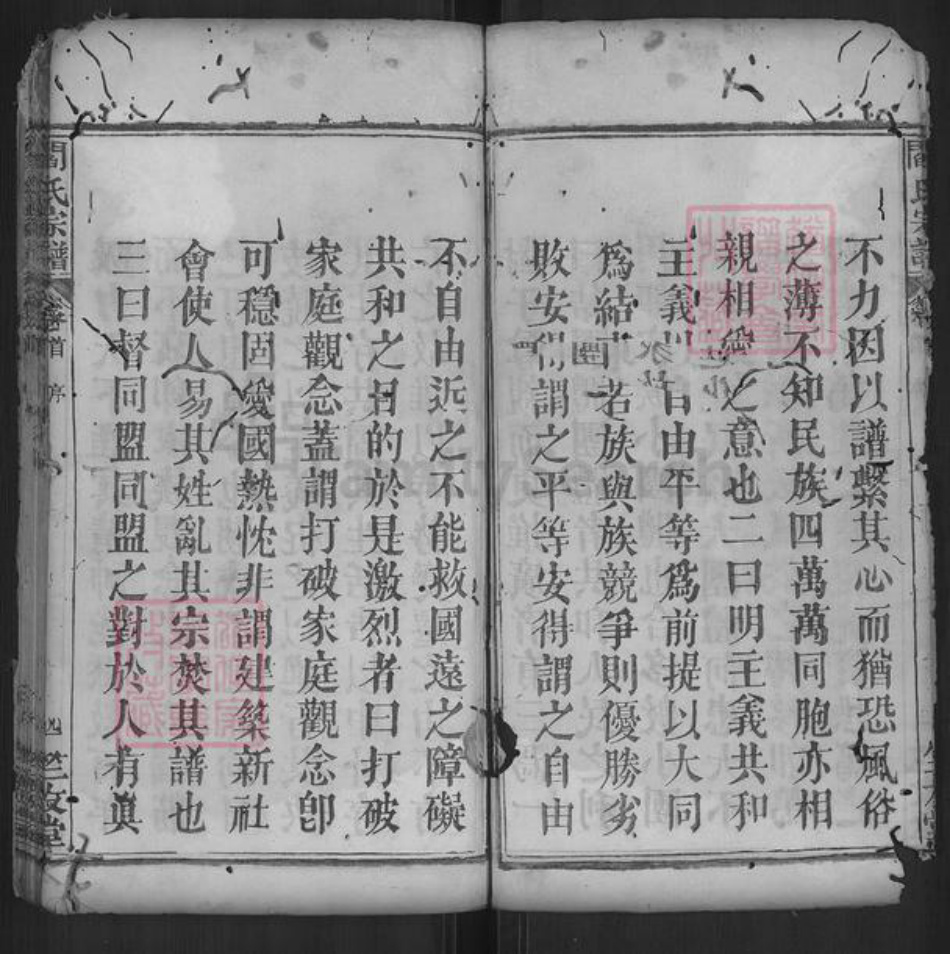 不力因以譜繫其心而猶恐風俗
之薄不知民族四萬萬同胞亦相
親相愛之意也二曰明主義共和
主義以自由平等為前提以大同
為結 若族與族競爭則優勝劣
敗安得謂之平等安得謂之自由
不自由近之不能救國遠之障礙
共和之目的於是激烈者曰打破
家庭觀念蓋謂打破家庭觀念卽
可穩固愛國熱忱非謂建築新社
會使人易其姓亂其宗焚其譜也
三曰督同盟同盟之對於人有眞
閻氏宗譜
卷首
序
四